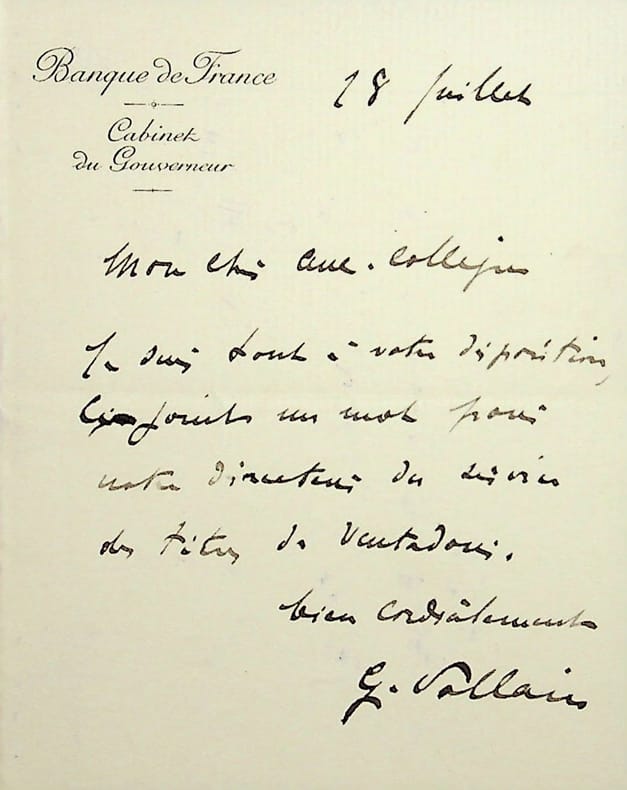 Banque de France
Cabinet
du Gouverneur
18 juillet
Mon cher collègue
Je suis tout à votre disposition,
ci joint un mot pour
notre directeur du service
des titres de Ventadour.
bien cordialement
G. Pallain